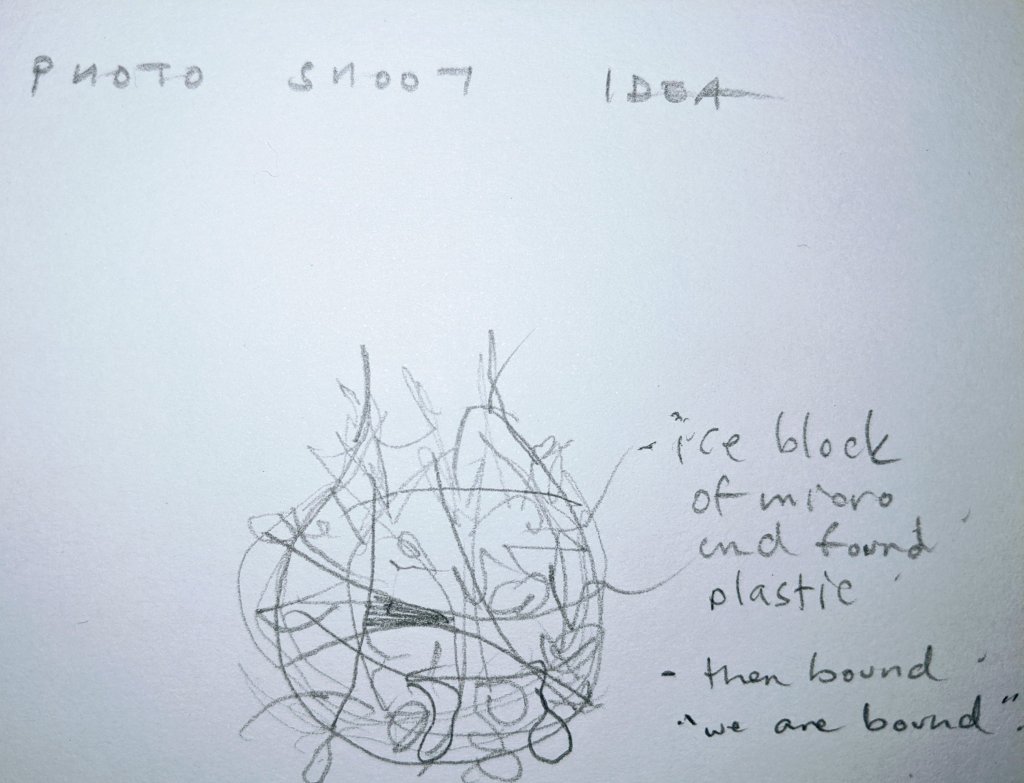 PHOTO SHOOT IDEA
- ice block
of micro
and found
plastic
- then bound
"we are bound".